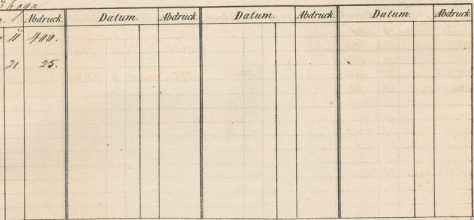 Abdruck. Datum. Abdruck. Datum. Abdruck. Datum. Abdruck.
11 400.
21 25.